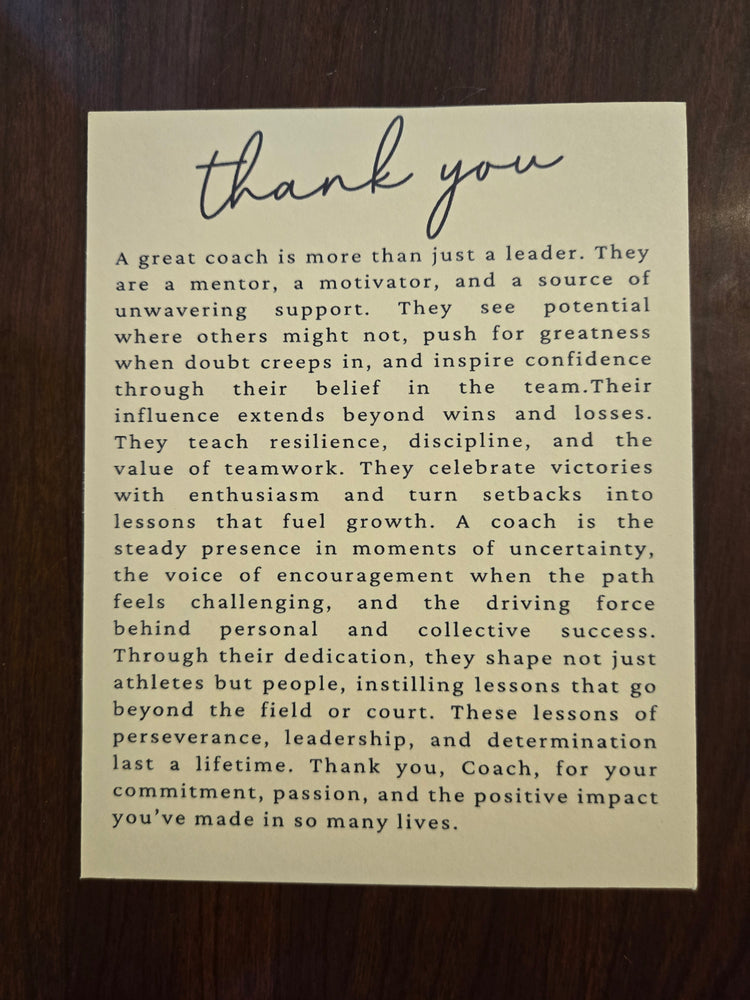 thank you
A great coach is more than just a leader. They
are a mentor, a motivator, and a source of
unwavering support. They see potential
where others might not, push for greatness
when doubt creeps in, and inspire confidence
through their belief in the team.Their
influence extends beyond wins and losses.
They teach resilience, discipline, and the
value of teamwork. They celebrate victories
with enthusiasm and turn setbacks into
lessons that fuel growth. A coach is the
steady presence in moments of uncertainty,
the voice of encouragement when the path
feels challenging, and the driving force
behind personal and collective success.
Through their dedication, they shape not just
athletes but people, instilling lessons that go
beyond the field or court. These lessons of
perseverance, leadership, and determination
last a lifetime. Thank you, Coach, for your
commitment, passion, and the positive impact
you've made in so many lives.